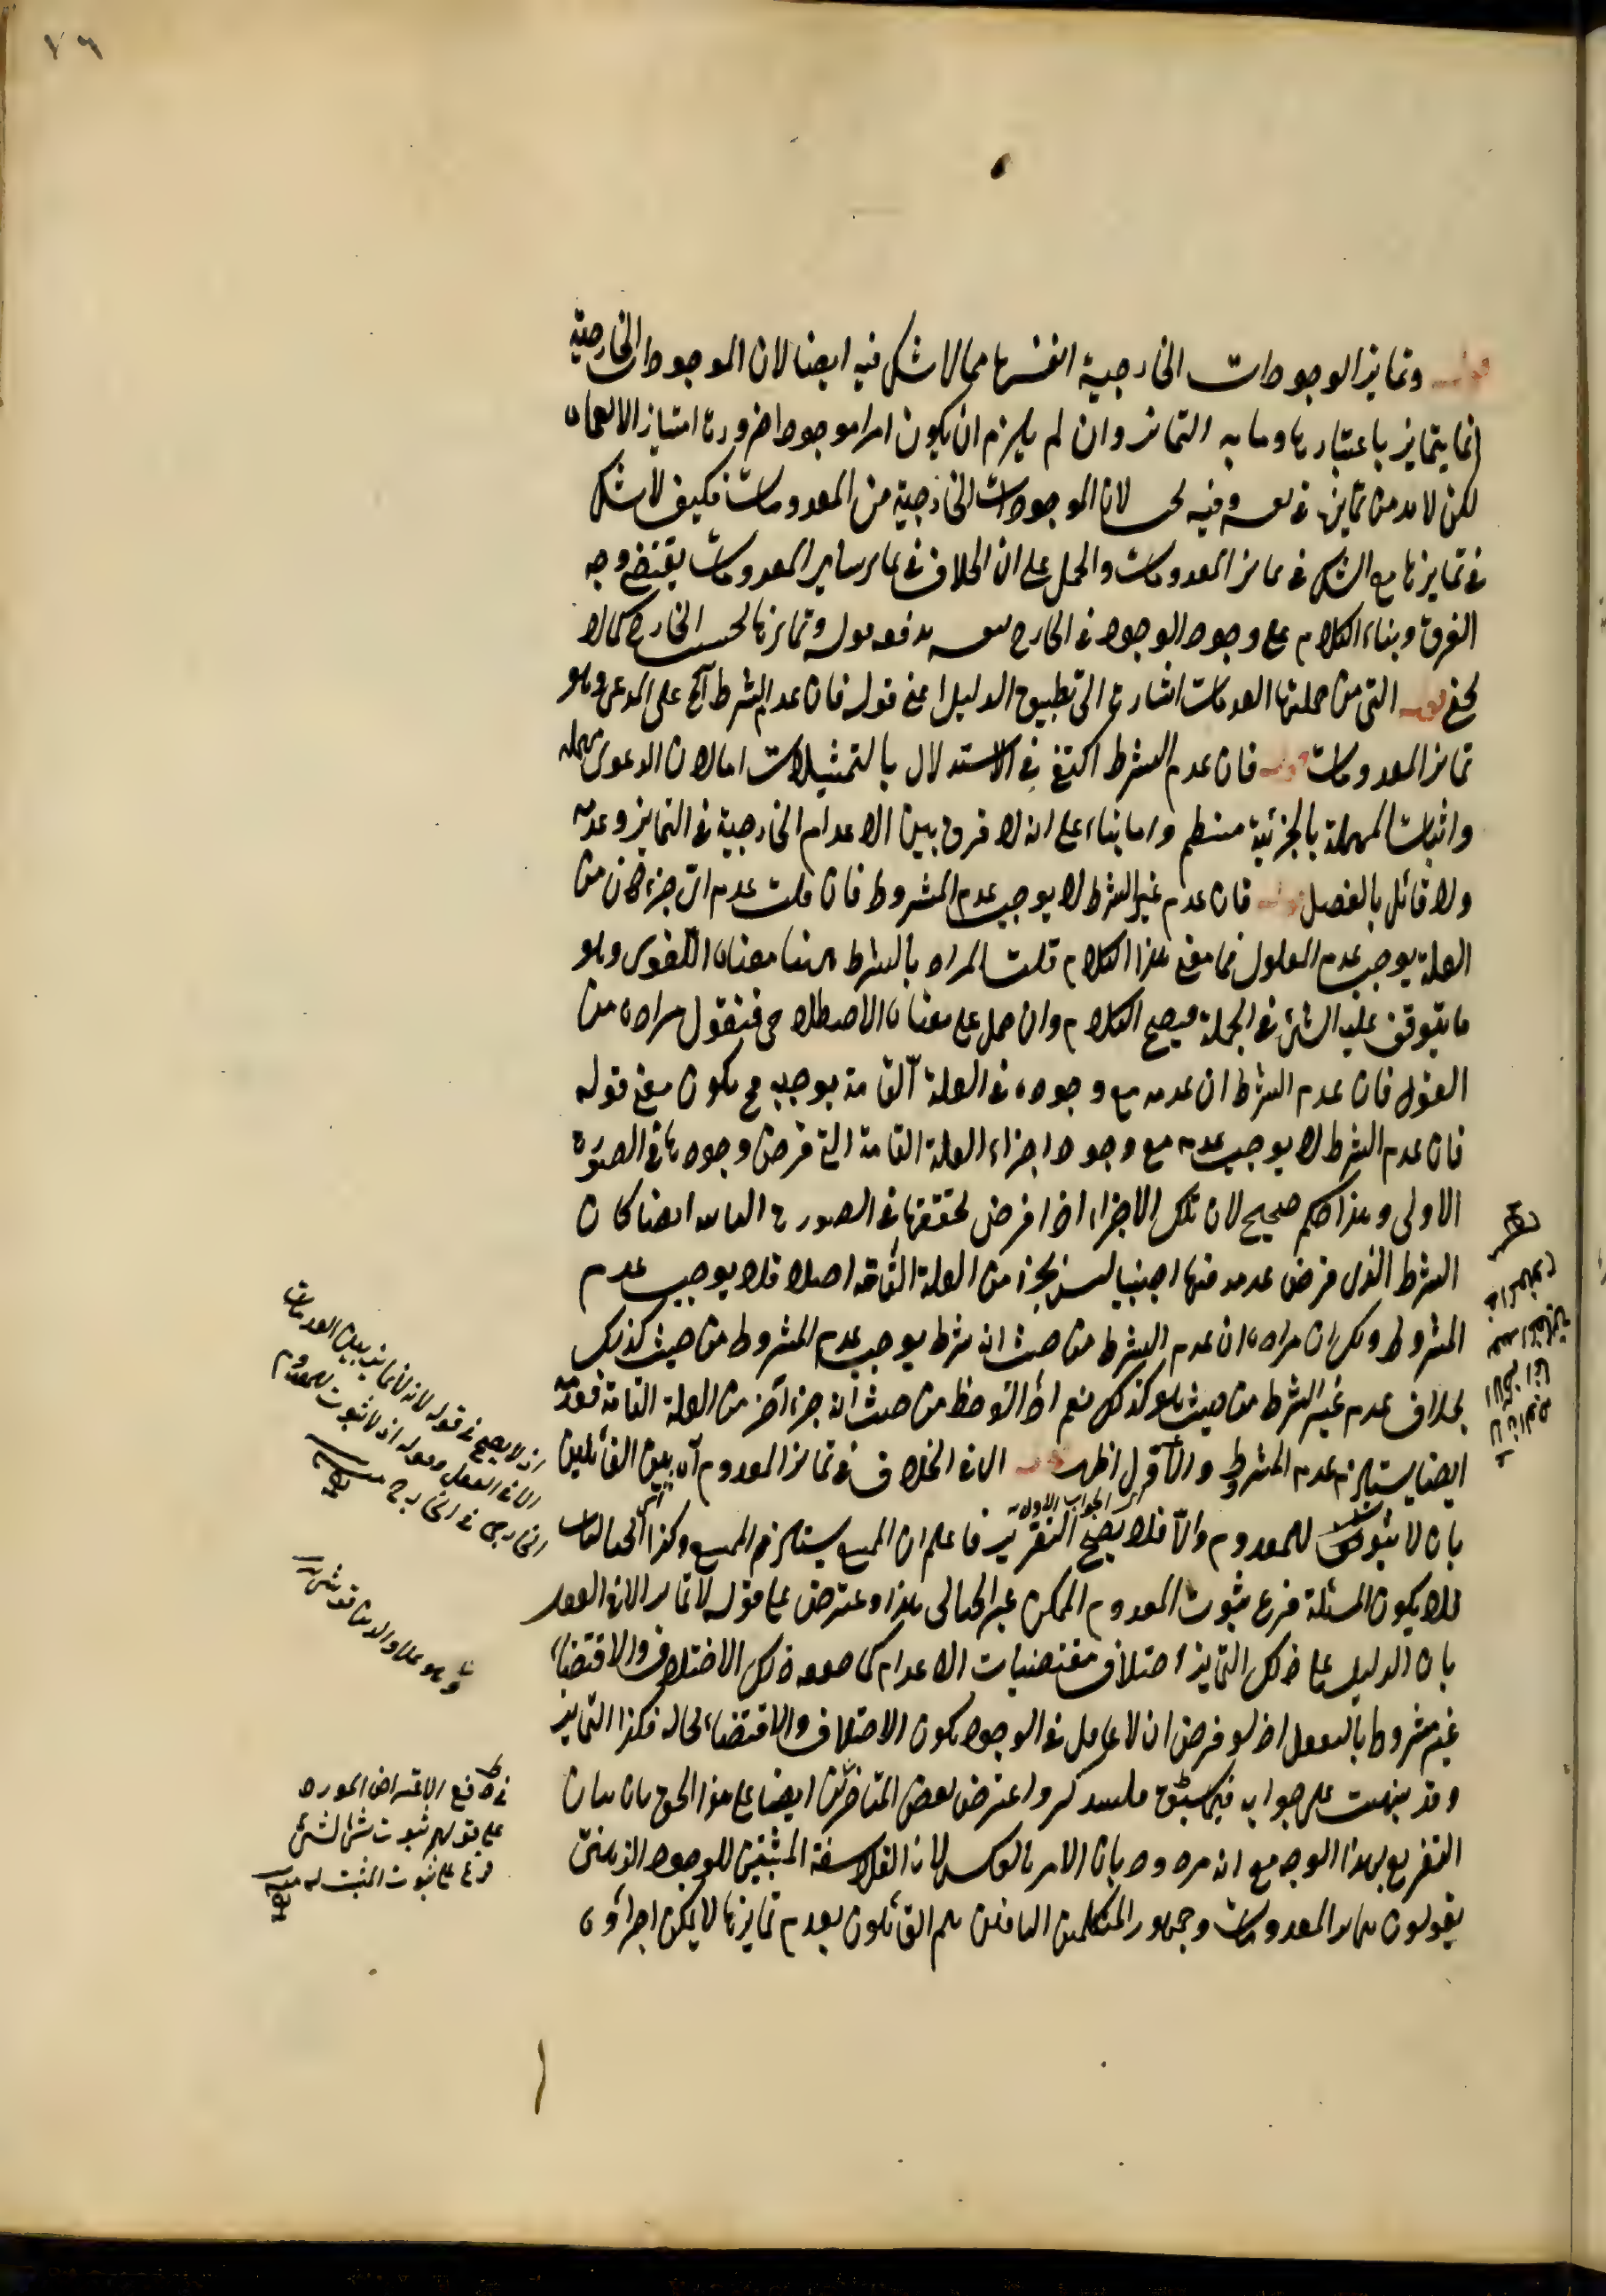 ٧٦
قوله وتمايز الوجودات الخارجية انفسها مما لا شك فيه ايضا لان الموجودات الخارجية
انما يتمايز باعتبارها وما به التمايز وان لم يلزم ان يكون امرا موجودا ضرورة امتياز الاعمى
لكن لا بد من تمايزه في نفسه وفيه بحث لان الموجودات الخارجية من المعدومات فكيف لا شك
في تمايزها مع الشك في تمايز المعدومات والحمل على ان الخلاف في تمايز ساير المعدومات يقتضي وجه
الفرق وبناء الكلام على وجود الوجود في الخارج نفسه يدفعه قوله وتمايزها بحسب الخارج كما لا
يخفى قوله التي من جملتها العدمات اشارة الى تطبيق الدليل اعني قوله فان عدم الشرط آه على المدعى وهو
تمايز المعدومات قوله فان عدم الشرط اكتفى في الاستدلال بالتمثيلات اما لان الدعوى مهملة
واثبات المهملة بالجزئية منتظم واما بناء على انه لا فرق بين الاعدام الخارجية في التمايز وعدمه
ولا قائل بالفصل قوله فان عدم غير الشرط لا يوجب عدم المشروط فان قلت عدم اي جزء كان من
العلة يوجب عدم المعلول فما معنى هذا الكلام قلت المراد بالشرط ههنا معناه اللغوي وهو
ما يتوقف عليه الشئ في الجملة فيصح الكلام وان حمل على معناه الاصطلاحي فنقول مراده من
القول فان عدم الشرط ان عدمه مع وجوده في العلة التامة يوجب فح يكون معنى قوله
فان عدم الشرط لا يوجب عدمه مع وجود اجزاء العلة التامة التي فرض وجودها في الصورة
الاولى وهذا حكم صحيح لان تلك الاجزاء اذا فرض تحققها في الصورة الثانية ايضا كان
الشرط الذي فرض عدمه فيها اجنبيا ليس بجزء من العلة التامة اصلا فلا يوجب عدم
المشروط ولك ان مراده ان عدم الشرط من حيث انه شرط يوجب عدم المشروط من حيث كذلك
بخلاف عدم غير الشرط من حيث هو كذلك نعم اذا لوحظ من حيث انه جزء آخر من العلة التامة فعدمه
ايضا يستلزم عدم المشروط والاول اظهر قوله الا في الخلاف في تمايز المعدوم آه بين القائلين
اي الجواب الاول
بان لا ثبوت للمعدوم والا فلا يصح التفريع فاعلم ان الممتنع يستلزم الممتنع وكذا الخياليات
فلا يكون المسئلة فرع ثبوت المعدوم الممكن غير الخيالي هذا واعترض على قوله لا تمايز الا في العقل
بان الدليل على ذلك التمايز اختلاف مقتضيات الاعدام كما ذلك الاختلاف والاقتضاء
غير مشروط بالتعقل اذ لو فرض ان لا عاقل في الوجود يكون الاختلاف والاقتضاء بحاله فكذا التمايز
وقد نبهت على جوابه فيما سبق فليتذكر واعترض بعض المتاخرين ايضا على هذا الحق بان بيان
التفريع بهذا الوجه مع انه مردود بان الامر بالعكس لان الفلاسفة المثبتين للوجود الذهني
يقولون بتمايز المعدومات وجمهور المتكلمين النافين هم القائلون بعدم تمايزها لا يمكن اجراؤه
اذ لا يصح في قوله لانه لا تمايز بين العدمات
الا في العقل وقوله اذ لا ثبوت للمعدوم
الخارجي في الخارج منه
في دفع الاعتراض المورد
على قولهم ثبوت شئ لشئ
فرع على ثبوت المثبت له منه